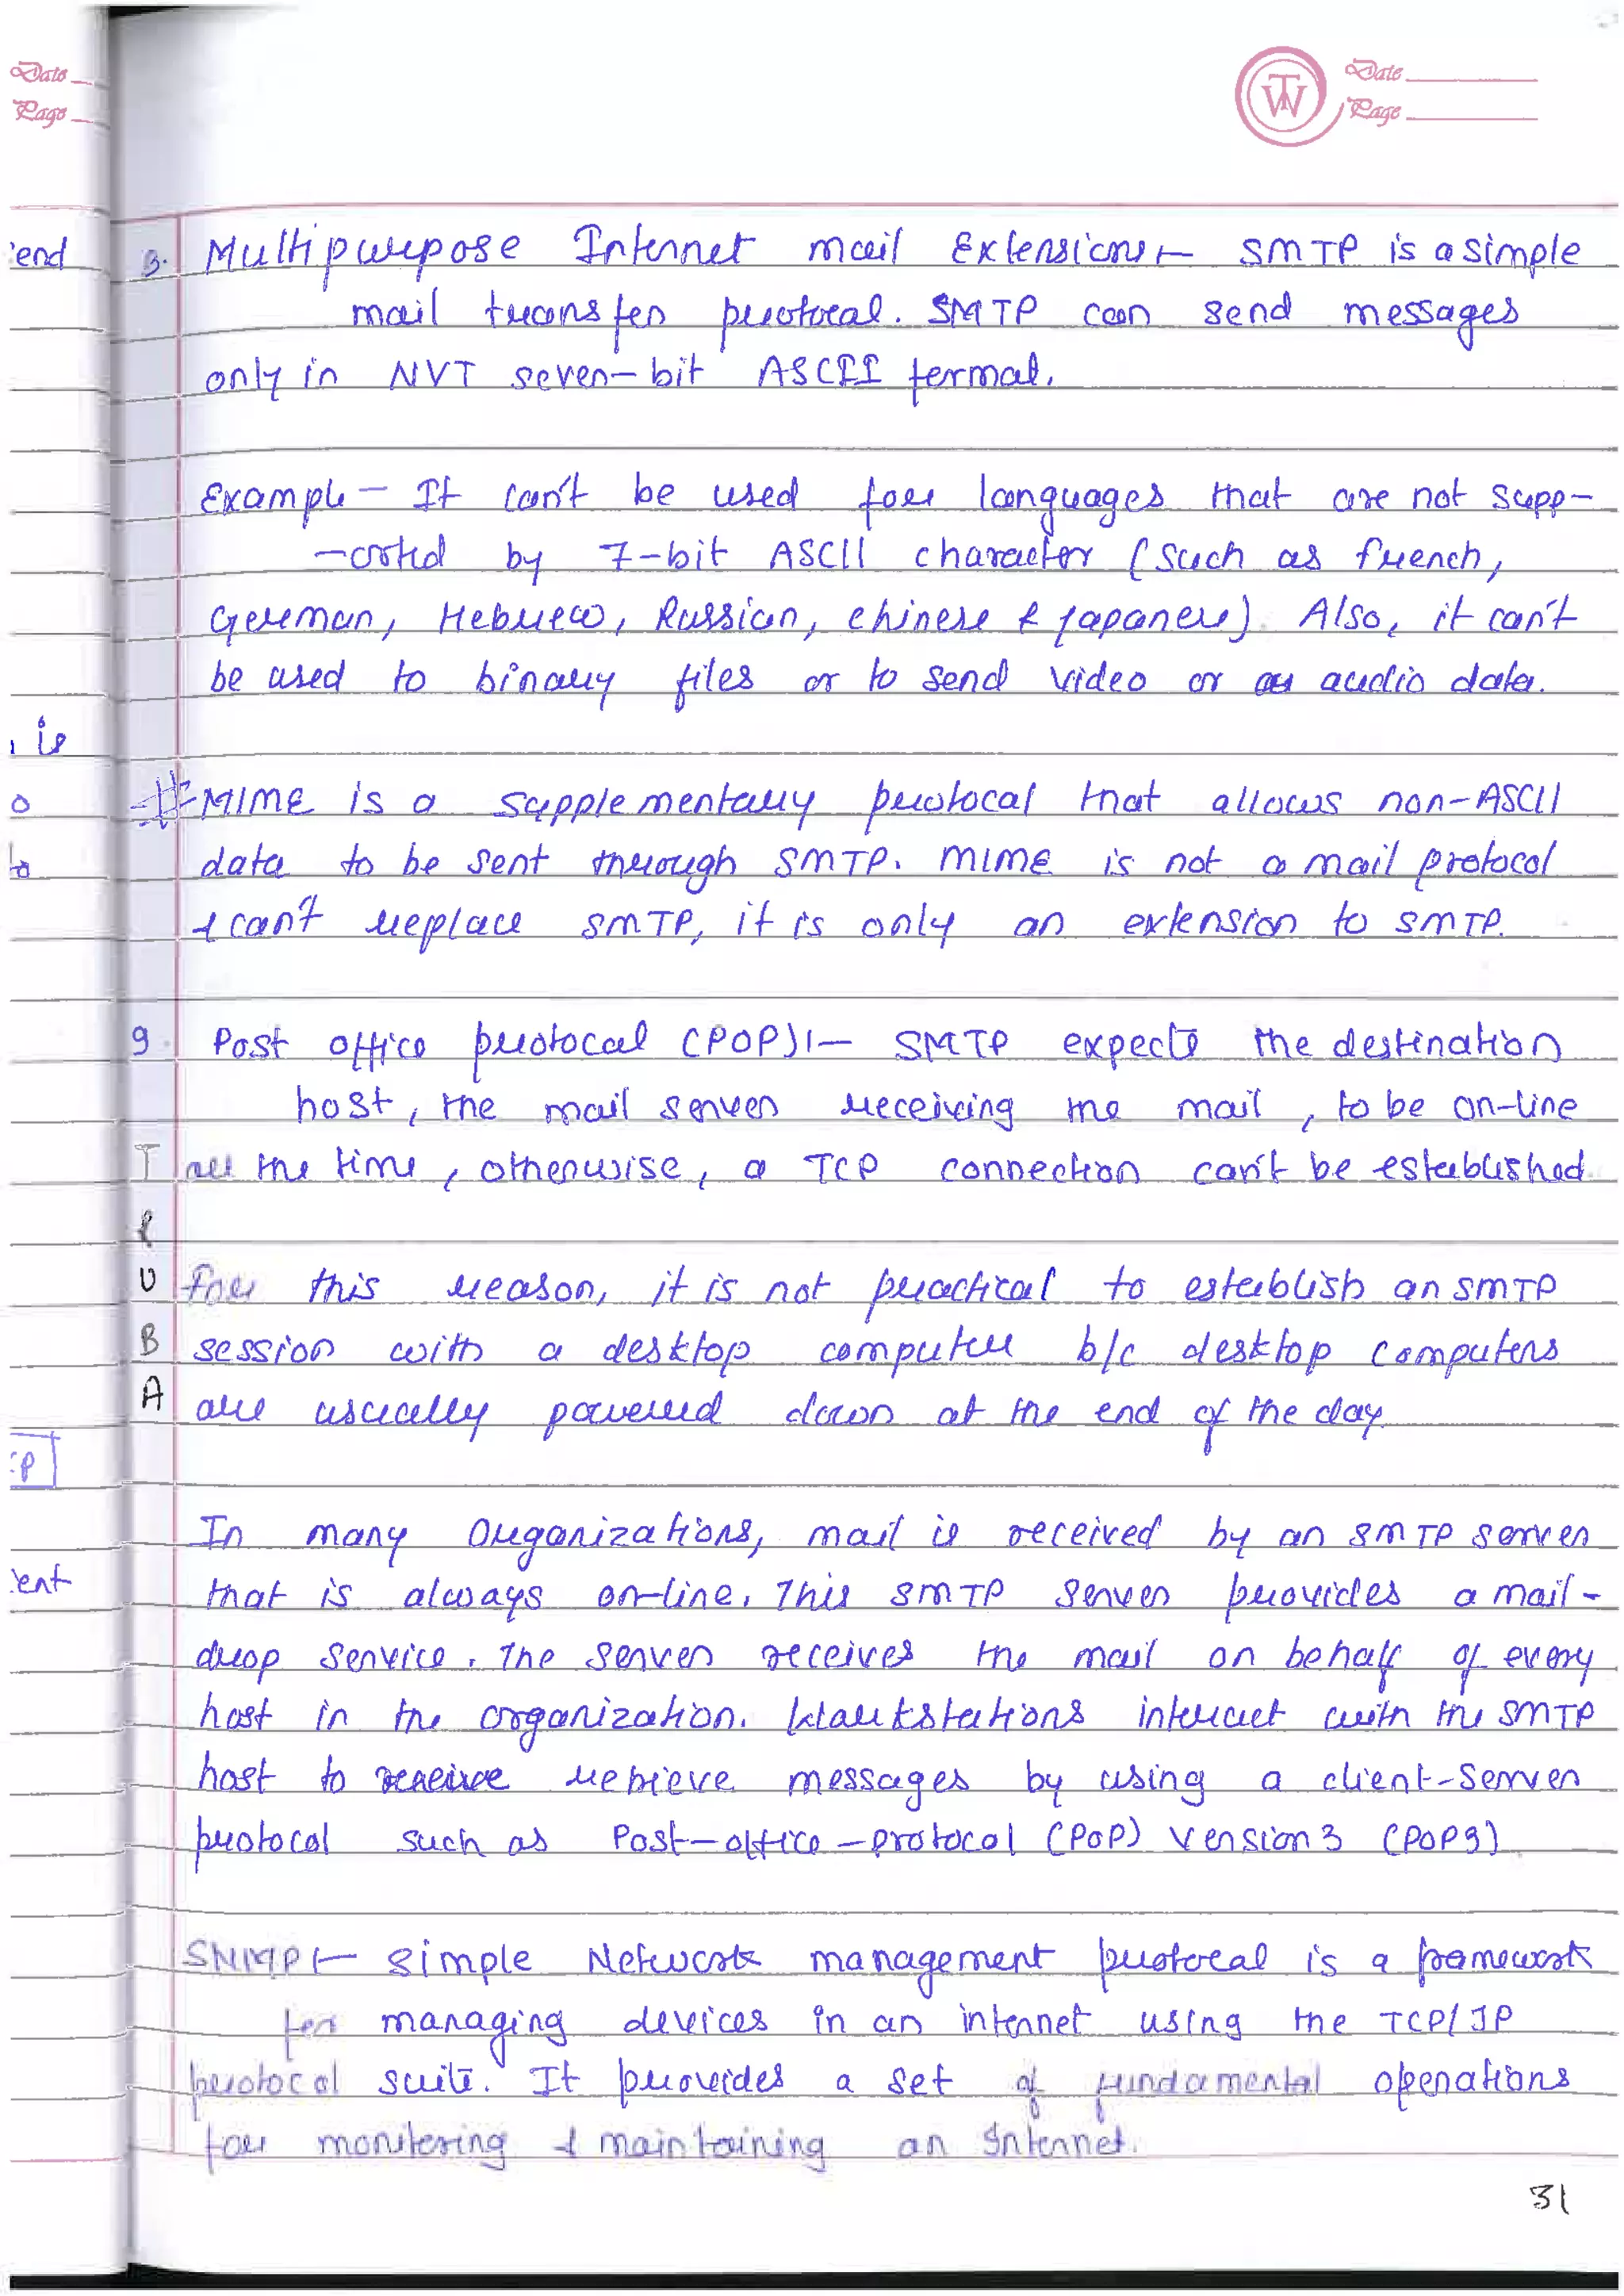 Date
Page
TW
Date
Page
end
3. Multipurpose Internet mail Extensions :- SMTP is a simple
mail transfer protocal. SMTP can send messages
only in NVT seven-bit ASCII format.
Example - It can't be used for languages that are not supp-
-orted by 7-bit ASCII character (such as french,
German, Hebrew, Russian, chinese & japanese). Also, it can't
be used to binary files or to send video or audio data.
is
o
to
# MIME is a supplementary protocal that allows non-ASCII
data to be sent through SMTP. MIME is not a mail protocol
& can't replace SMTP, it is only an extension to SMTP.
9. Post office protocal (POP) :- SMTP expects the destination
host, the mail server receiving the mail, to be on-line
all the time, otherwise, a TCP connection can't be established
For this reason, it is not practical to establish an SMTP
session with a desktop computer b/c desktop computers
are usually powered down at the end of the day.
T
R
U
B
A
CP
ent
In many Organizations, mail is received by an SMTP server
that is always on-line. This SMTP server provides a mail-
drop service. The server receives the mail on behalf of every
host in the organization. Workstations interact with the SMTP
host to receive retrieve messages by using a client-server
protocol such as Post-office-protocol (POP) version 3 (POP3)
SNMP :- Simple Network management protocal is a framework
for managing devices in an internet using the TCP/IP
protocol suite. It provides a set of fundamental operations
for monitering & maintaining an Internet.
31